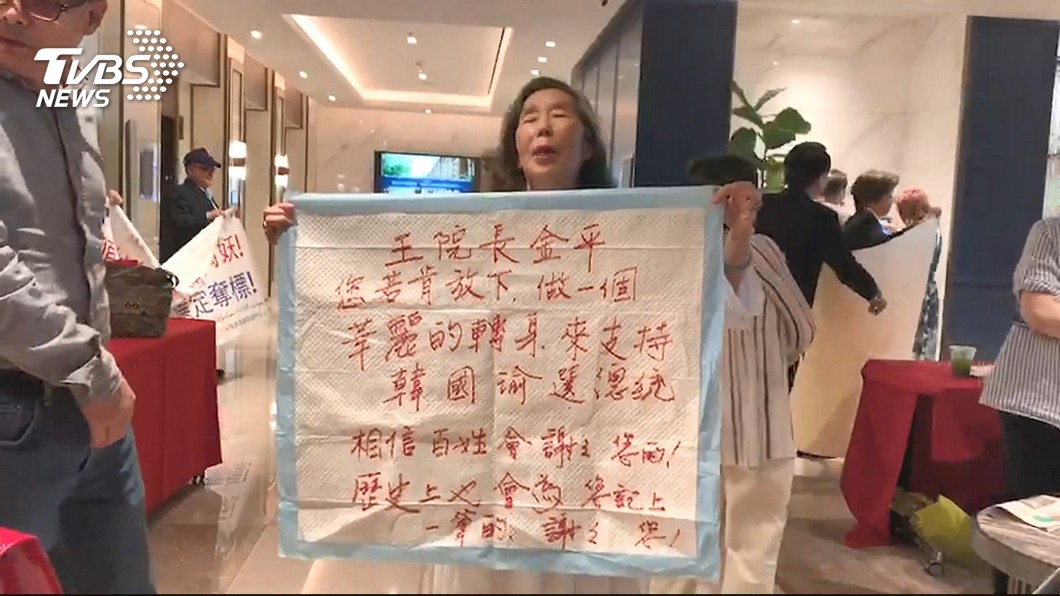 TVBS
NEWS
妖!
定奪標!
王院長金平
您若肯放下,做一個
華麗的轉身來支持
韓國瑜選總統
相信百姓會謝謝您的!
歷史上也會為您記上
一筆的,謝謝您!